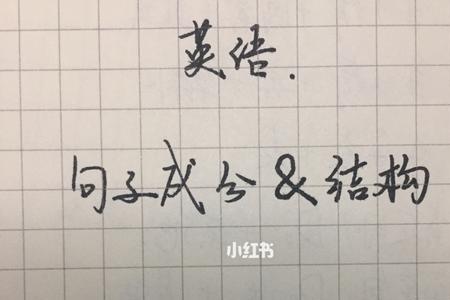 英语.
句子成分&结构
小红书